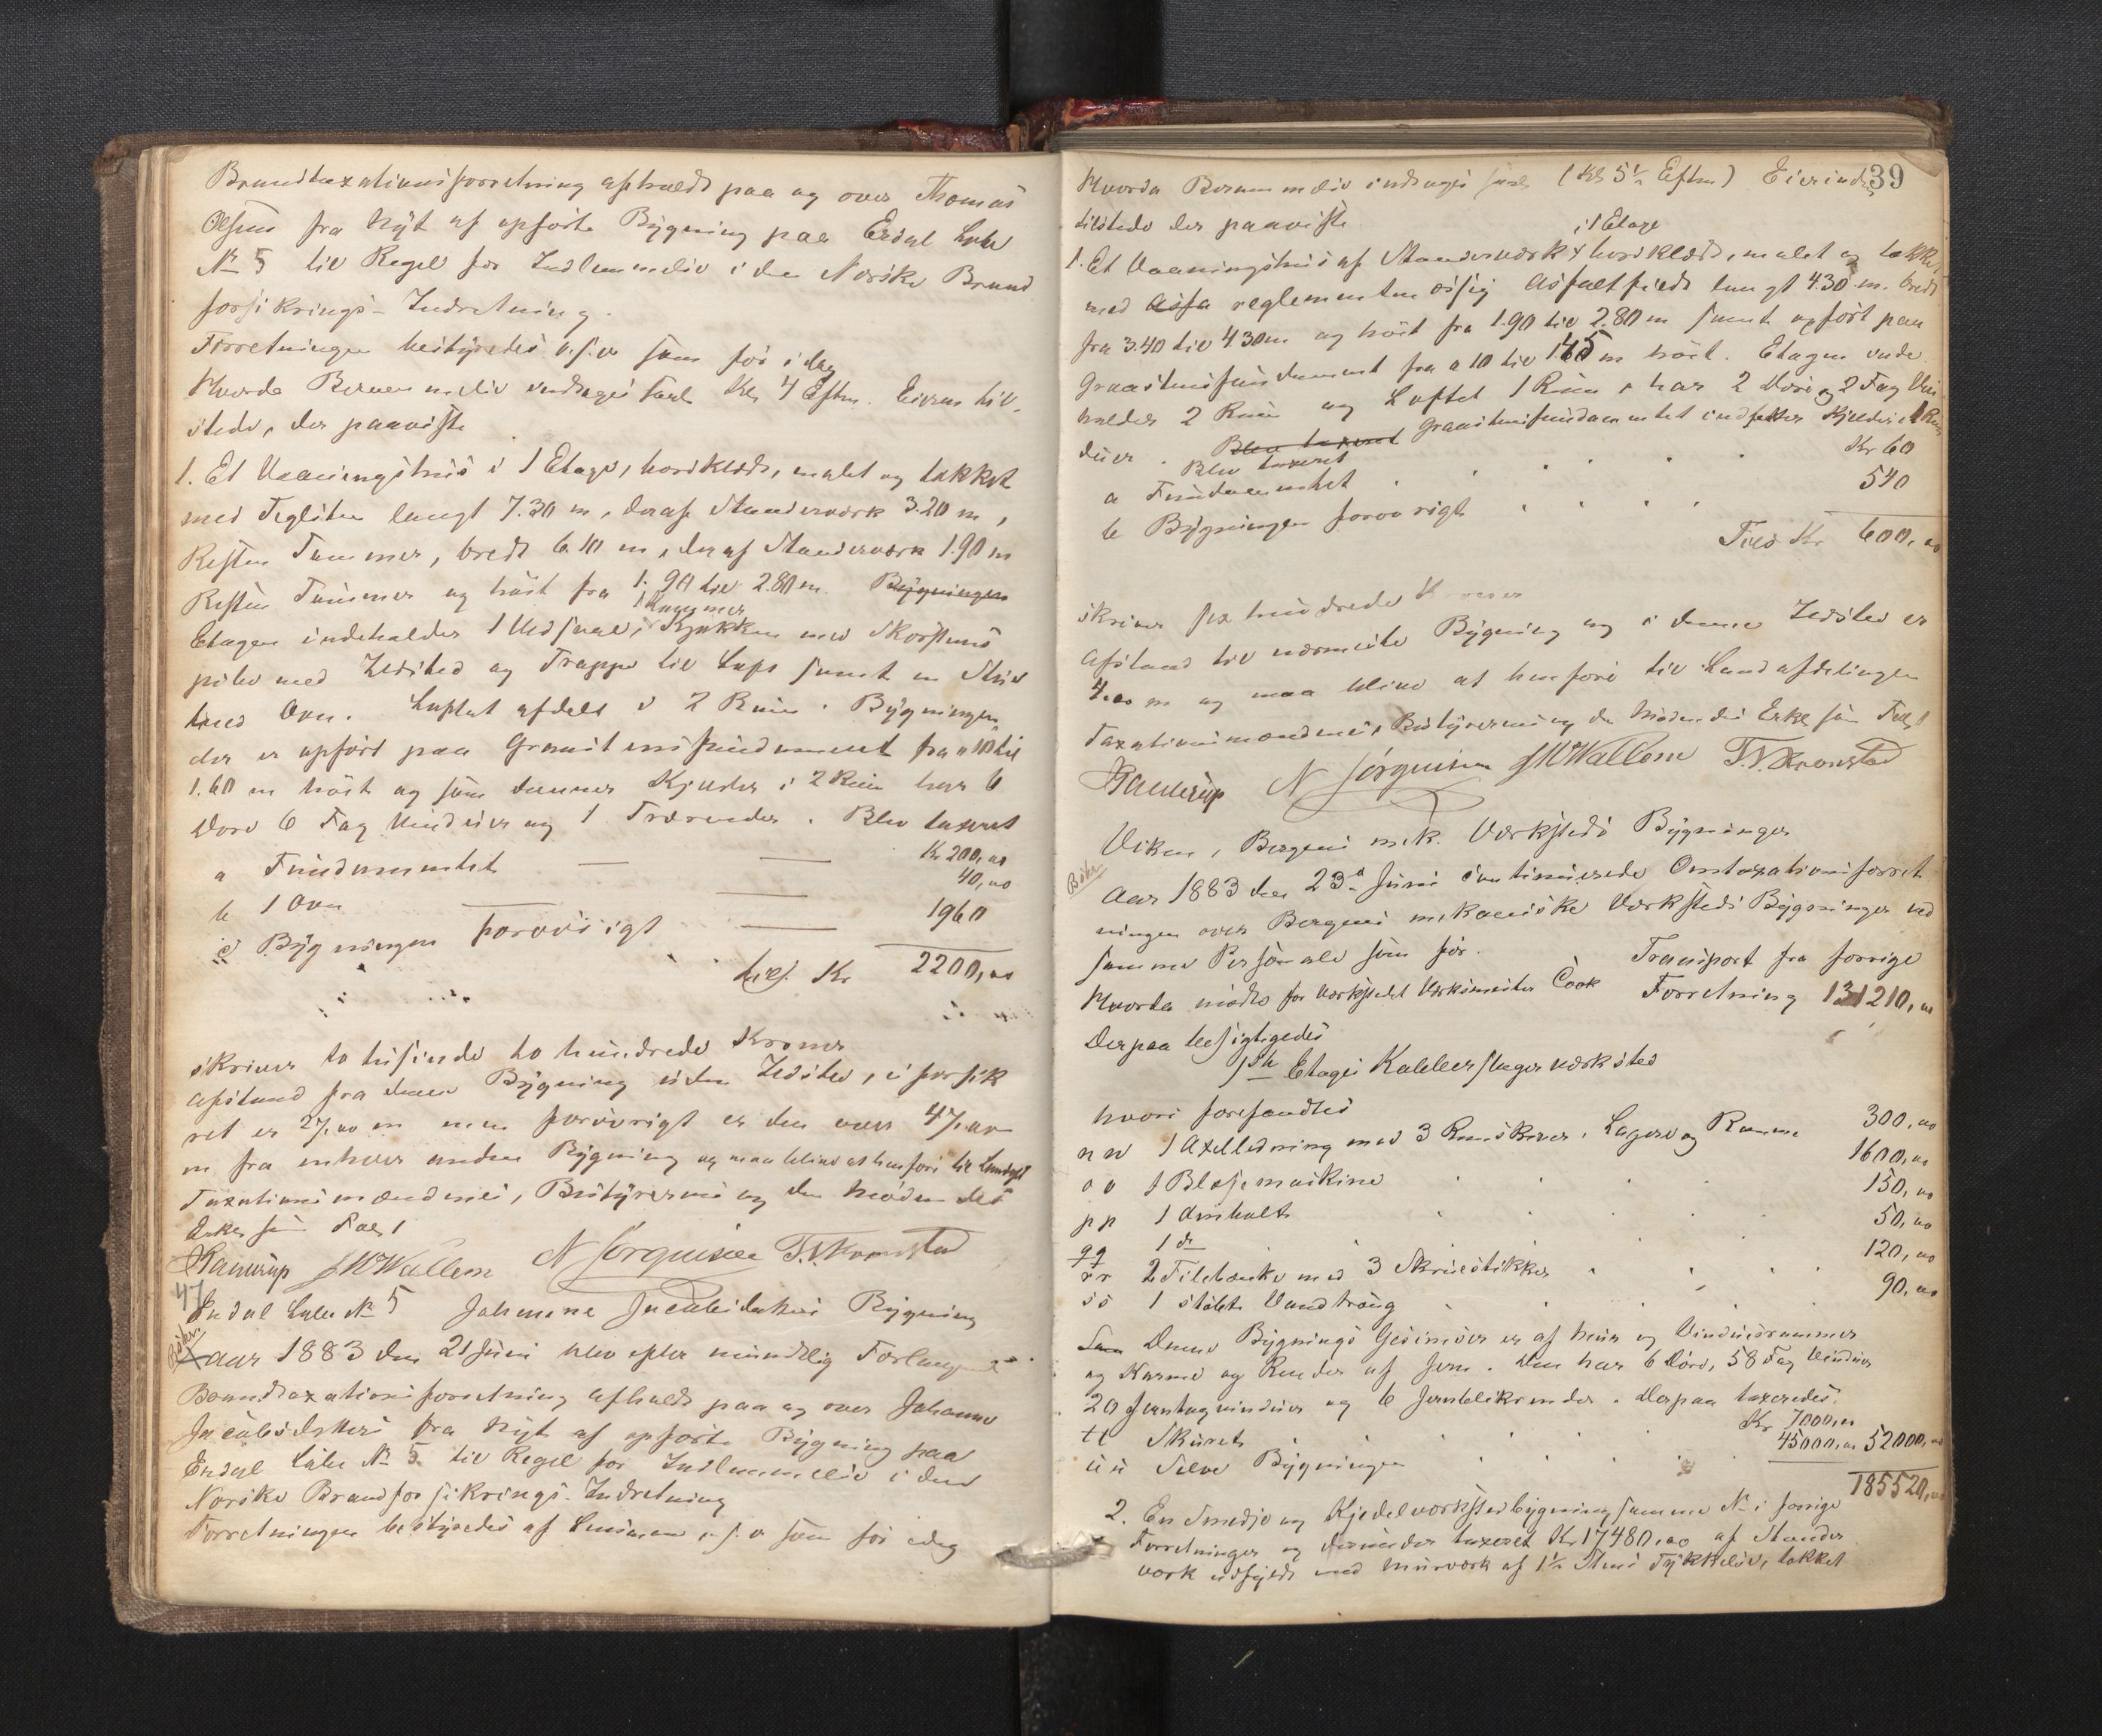 Brandtaxationsforretning afholdt paa og over Thomas
Olsens fra Nyt af opførte Bygning paa Erdal Lübe
No 5 til Regel for Indlemmelse i den Norske Brand
forsikrings-Indretning.
Forretningen bestyredes o.s.v som før i dag
Hvorda Bemeldte Kl 4 Eftm. Eieren til-
stede, der paaviste
1. Et Vaaningshus i 1 Etage, bordklædt, malet og tækket
med Teglsten langt 7.30 m, deraf Standerværk 3.20 m,
Resten Tømmer, bredt 6.10 m, deraf Standerværk 1.90 m
Resten Tømmer og høit fra 1.90 til 2.80 m. Bygningen
1 Kammer
Etagen indeholder 1 Kjøkken med Skorstens
pibe med Ildsted og Trappe til Loft samt en Stue
med Ovn. Loftet afdelt i 2 Rum. Bygningen,
der er opført paa Graastensfundament fra 0.10 til
1.60 m høit og som danner Kjelder i 2 Rum har 6
Døre 6 Fag Vinduer og 1 Trærender. Blev taxeret
a Fundamentet Kr 200,00
b 1 Ovn 40,00
c Bygningen forøvrigt 1960
tils. Kr 2200,00
skriver to tusinde to hundrede Kroner
Afstand fra denne Bygning uden Ildsted, i forsik
ret er 27,00 m men forøvrigt er den over 47,00
m fra enhver anden Bygning og maa blive at henføre til Landafd
Taxationsmændenes, Bestyrerens og den Mødendes
Erkl. som Fall
Hauerup JWWallem N Jørgensen T.N.Kronstad
47
Erdal Lübe No 5 Johanne Jacobsdatters Bygning
Aar 1883 den 21 Juni blev efter mundtlig Forlangende
Brandtaxationsforretning afholdt paa og over Johanne
Jacobsdatters fra Nyt af opførte Bygning paa
Erdal Lübe No 5 til Regel for Indlemmelse i den
Norske Brandforsikrings-Indretning
Forretningen bestyredes af Lensmanden o.s.v som før idag
39
Hvorda (Kl 5½ Eftm) Eierinden
tilstede der paaviste
i 1 Etage
1. Et Vaaningshus af Standerværk bordklædt, malet og tækket
med Asfa reglementmæssig Asfaltfildt langt 4.30 m. bredt
fra 3.40 til 4.30 m og høit fra 1.90 til 2.80 m samt opført paa
Graastensfundament fra 0.10 til 1.45 m høit. Etagen inde
holder 2 Rum og Loftet 1 Rum, har 2 Døre og 2 Fag Vin
duer. Blev taxeret Graastensfundamentet indeholder Kjelder i 1 Rum
Blev taxeret
a Fundamentet Kr 60
b Bygningen forøvrigt 540
Tils Kr 600,00
skriver sex hundrede Kroner
Afstand til nærmeste Bygning og i denne Ildsted er
4,00 m og maa blive at henføre til Landafdelingen
Taxationsmændenes, Bestyrerens og den Mødendes Erkl. som Fall
Hauerup N Jørgensen JWWallem T.N.Kronstad
Viken, Bergens mek. Værksteds Bygninger
Aar 1883 den 23d Juni continuerede Omtaxationsforret
ningen over Bergens mekaniske Værksteds Bygninger ved
samme Personale som før. Transport fra forrige
Hvorda mødte for Værkstedet Værksmester Cook Forretning 131210,00
Derpaa besigtigedes
1ste Etage Kobberslagerværksted
hvori forefandtes
nn 1 Axelledning med 3 Remskiver, Lagere og Remme 300,00
oo 1 Blæsemaskine 1600,00
pp 1 Ambolt 150,00
qq 1 do 50,00
rr 2 Filebænke med 3 Skruestikker 120,00
ss 1 støbt Vandtrug 90,00
Denne Bygnings Gesimser er af Mur og Vinduesrammer
og Karme og Render af Jern. Den har 6 Døre, 58 Fag Vinduer
20 Jerntagvinduer og 6 Jernblikrender. Derpaa taxeredes.
tt Skuret Kr 7000,00
uu Selve Bygningen 45000,00 52000,00
185520,00
2. En Smedje og Kjedelværkstedbygning samme No i forrige
Forretninger og derunder taxeret Kr 17480,00 af Stander
værk udfyldt med Murværk af 1½ Stens Tykkelse, tækket